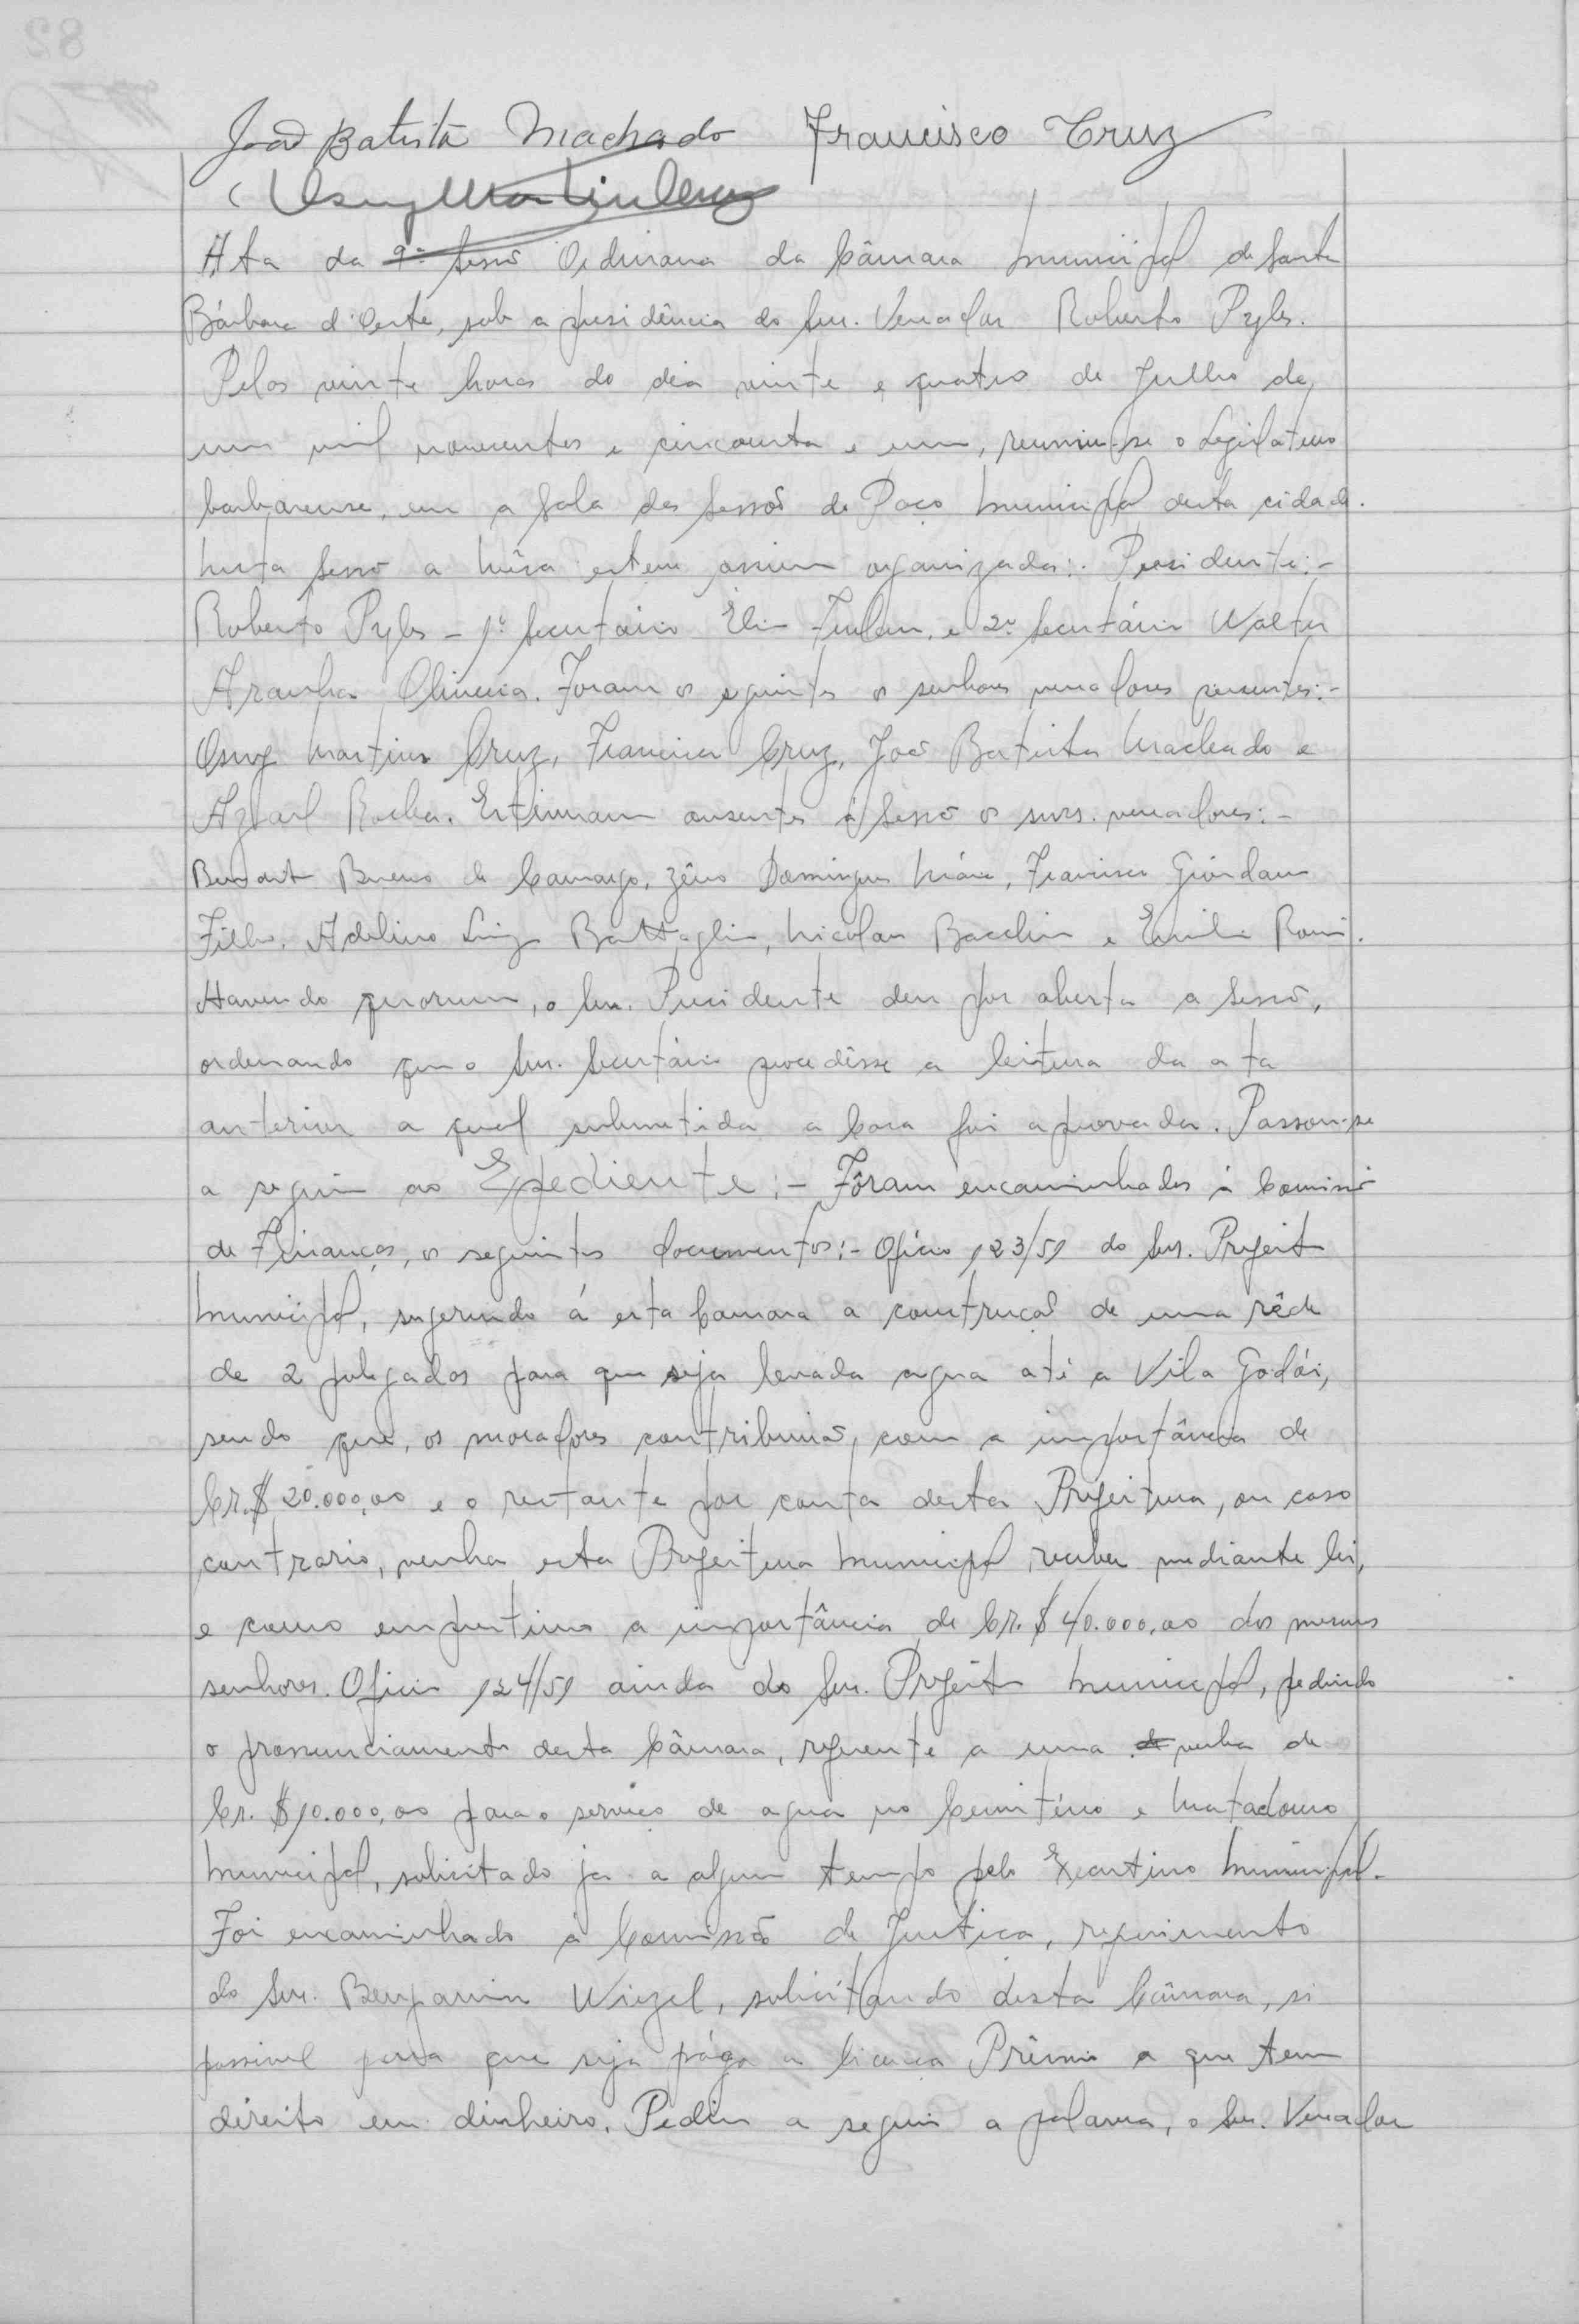 João Batista Machado Francisco Cruz
Osny Martins Cruz
Ata da 9ª Sessão Ordinaria da Câmara Municipal de Santa
Bárbara d'Oeste, sob a presidência do Snr. Vereador Roberto Pyles.
Pelas vinte horas do dia vinte e quatro de Julho de,
um mil novecentos e cincoenta e um, reuniu-se o Legislativo
barbarense, em a Sala das Sessões do Paço Municipal desta cidade.
Nesta Sessão a Mêsa esteve assim organizada:- Presidente:-
Roberto Pyles - 1º Secretário Elio Furlan, e 2º Secretário Walter
Aranha Oliveira. Foram os seguintes os senhores vereadores presentes:-
Osny Martins Cruz, Francisco Cruz, João Batista Machado e
Azael Rocha. Estiveram ausentes á Sessão os snrs. vereadores:-
Bueno de Camargo, Zêno Domingues Maia, Francisco Giordano
Filho, Adelino Luiz Battaglia, Nicolau Bacchin e Emilio Romi.
Havendo quorum, o Snr. Presidente deu por aberta a Sessão,
ordenando que o Snr. Secretário procedêsse a leitura da ata
anterior a qual submetida a Casa foi aprovada. Passou-se
a seguir ao Expediente:- Fôram encaminhados á Comissão
de Finanças, os seguintes documentos:- Oficio 123/51 do Snr. Prefeito
Municipal, sugerindo á esta Camara a construção de uma rêde
de 2 polegadas para que seja levada agua até a Vila Godói,
sendo que, os moradores contribuirão, com a importância de
Cr.$ 20.000,00 e o restante por conta desta Prefeitura, ou caso
contrario, venha esta Prefeitura Municipal receber mediante lei,
e como emprestimo a importância de Cr.$ 40.000,00 dos mesmos
senhores. Oficio 124/51 ainda do Snr. Prefeito Municipal, pedindo
o pronunciamento desta Câmara, referente a uma verba de
Cr.$10.000,00 para o serviço de agua no Cemitério e Matadouro
Municipal, solicitado ja a algum tempo pelo Executivo Municipal.
Foi encaminhado á Comissão de Justiça, requerimento
do Snr. Benjamin Wiezel, solicitando desta Câmara, si
possivel para que seja págo a licença Prêmio a que tem
direito em dinheiro. Pediu a seguir a palavra, o Snr. Vereador